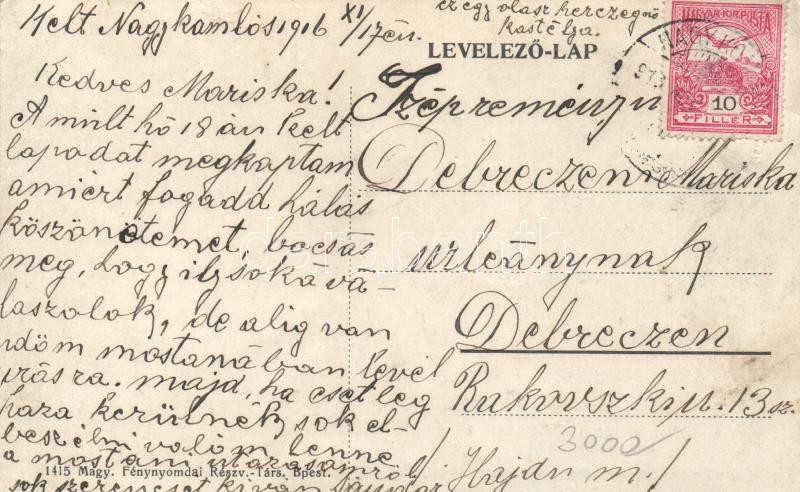 Kelt Nagykamlós 1916 XI/17én
ez egy olasz herczegnő
kastélya.
LEVELEZŐ-LAP
MAGYAR KIR. POSTA
10
FILLÉR
Kedves Mariska!
A mult hó 18án kelt
lapodat megkaptam
amiért fogadd hálás
köszönetemet, bocsás
meg, hogy ily soká vá-
laszolok, de alig van
időm mostanában levél
írásra. majd, ha esetleg
haza kerülnék, sok el-
beszélni valóm lenne
a mostani utazásomról
sok szerencsét kíván Sándor
Szépreményű
Debreczeni Mariska
urleánynak
Debreczen
Rakovszki u. 13 sz.
/Hajdu m./
3000
1415 Magy. Fénynyomdai Részv.-Társ. Bpest.
darabanth